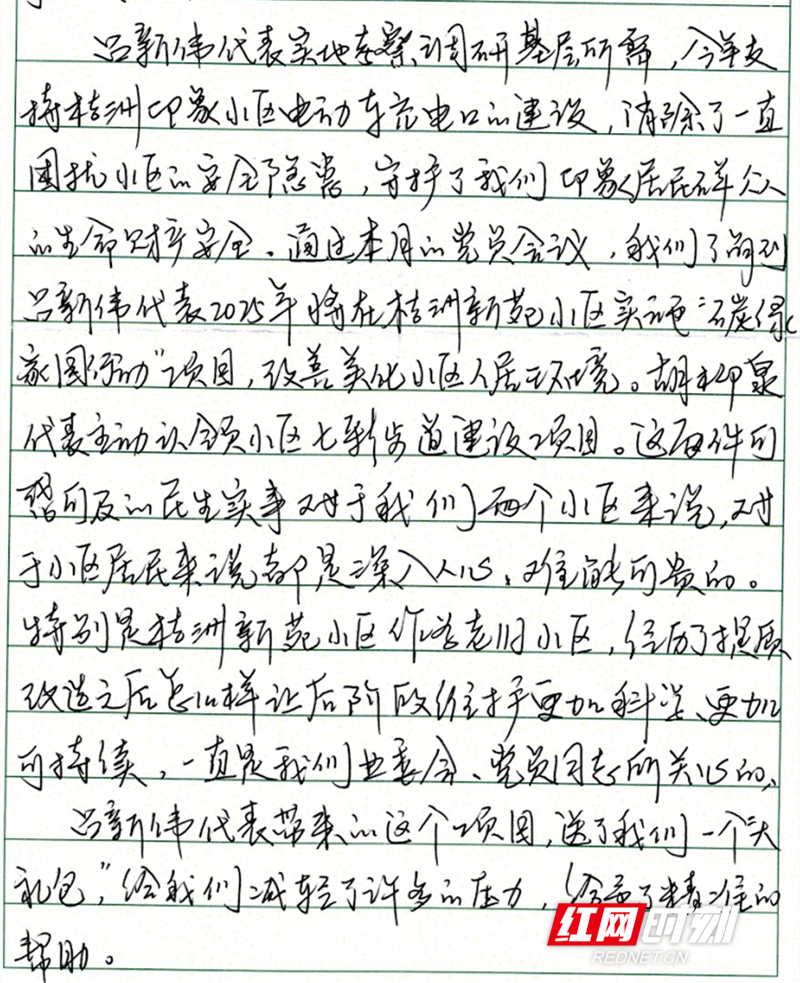 吕新伟代表实地考察调研基层所需，今年支
持桔洲印象小区电动车充电口的建设，消除了一直
困扰小区的安全隐患，守护了我们印象居民群众
的生命财产安全。通过本月的党员会议，我们了解到
吕新伟代表2025年将在桔洲新苑小区实施“碳绿
家园行动”项目，改善美化小区人居环境。胡
代表主动认领小区七彩步道建设项目。这两件可
望可及的民生实事对于我们两个小区来说，对
于小区居民来说都是深入人心、难能可贵的。
特别是桔洲新苑小区作为老旧小区，经历了提质
改造之后怎么样让后阶段维护更加科学、更加
可持续，一直是我们业委会、党员同志所关心的，
吕新伟代表带来的这个项目，送了我们一个“大
礼包”，给我们减轻了许多的压力，给予了精准的
帮助。
红网时刻
REDNET.CN